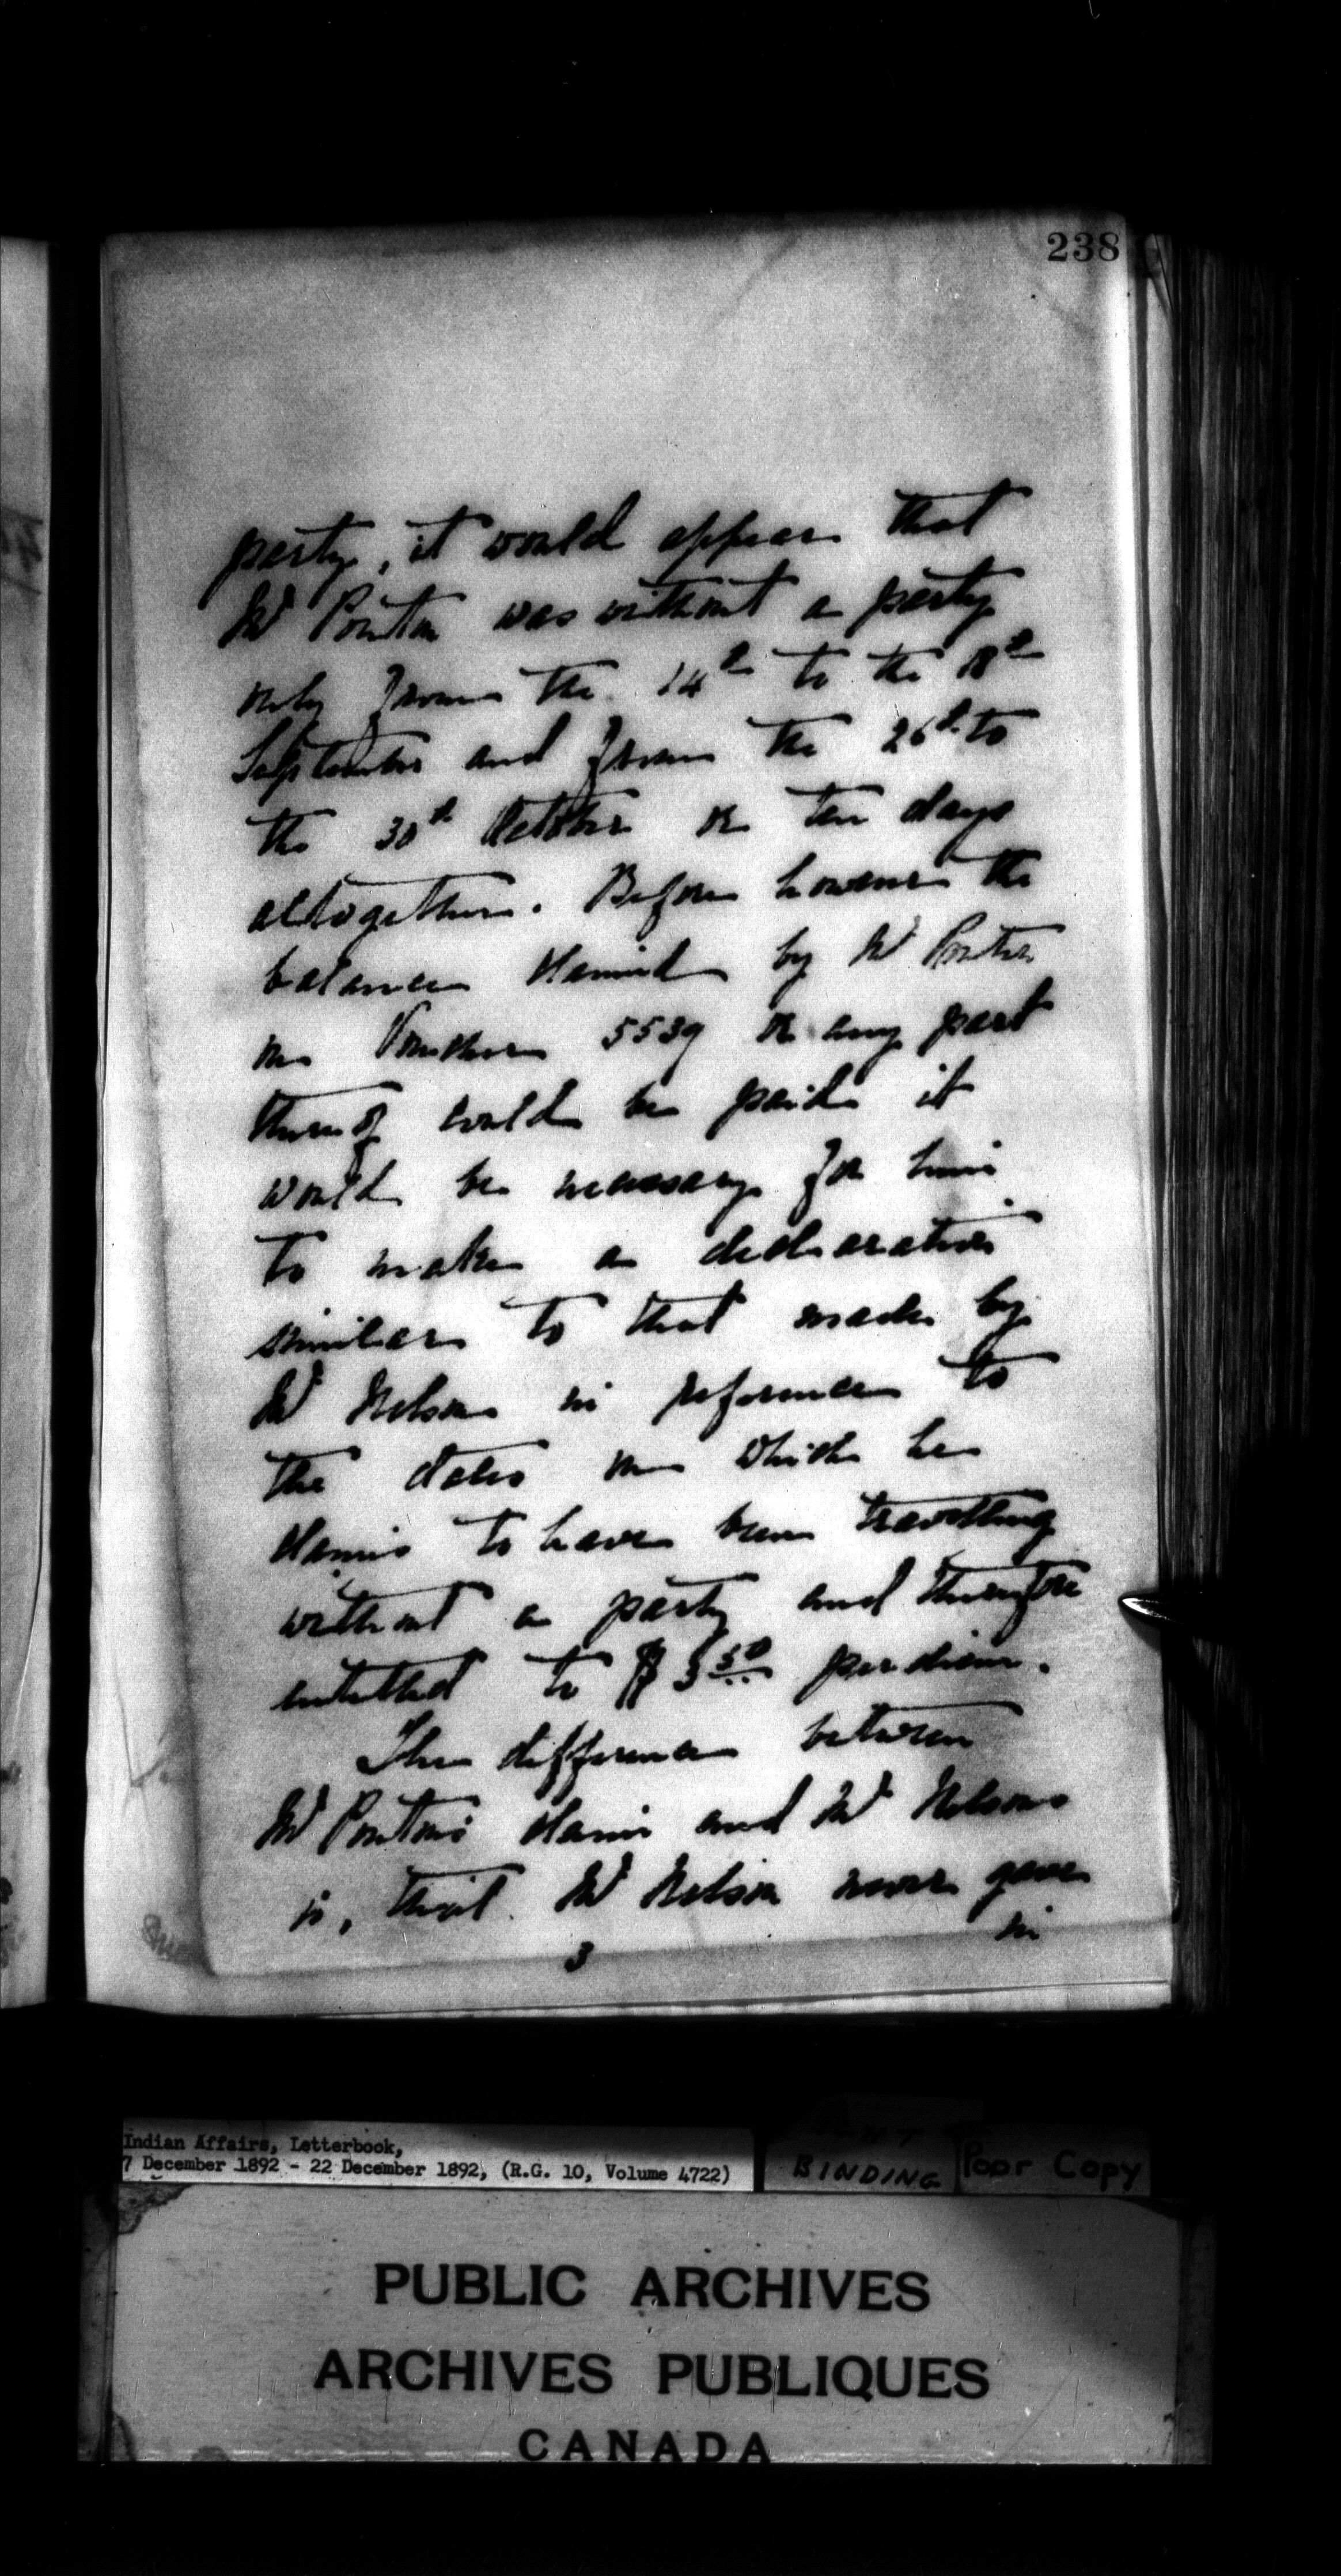 238
party, it would appear that
Mr Ponton was without a party
only from the 14th to the 18th
September and from the 26th to
the 30th October or ten days
altogether. Before however the
balance claimed by Mr Ponton
on Voucher 5539 or any part
thereof could be paid it
would be necessary for him
to make a declaration
similar to that made by
Mr Nelson in reference to
the dates on which he
claims to have been travelling
without a party and therefore
entitled to $3.50 per diem.
The difference between
Mr Ponton's claim and Mr Nelsons
is, that Mr Nelson never gave
in
3
Indian Affairs, Letterbook,
7 December 1892 - 22 December 1892, (R.G. 10, Volume 4722)
BINDING
Poor Copy
PUBLIC ARCHIVES
ARCHIVES PUBLIQUES
CANADA